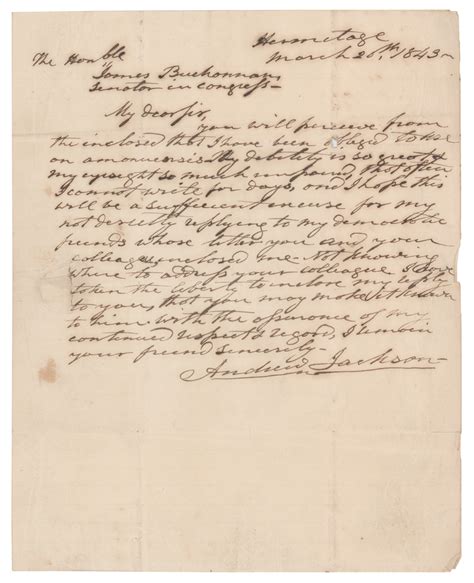 Hermitage
March 26th, 1843—
The Honble
James Buchannan,
Senator in Congress—
My dear sir,
you will perceive from
the inclosed that I have been obliged to use
an amanuensis. My debility is so great &
my eyesight so much impaired, that often
I cannot write for days, and I hope this
will be a sufficient excuse for my
not directly replying to my democratic
friends whose letter you and your
colleague inclosed me. Not knowing
where to address your colleague I have
taken the liberty to inclose my reply
to you, that you may make it known
to him. with the assurance of my
continued respect & regard, I remain
your friend sincerely—
Andrew Jackson—